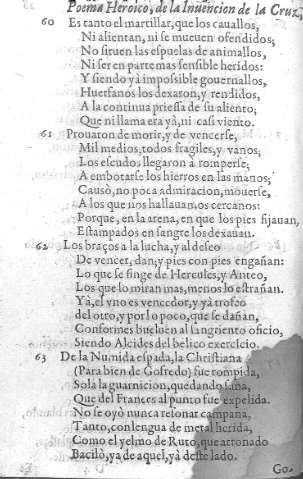 Poema Heroico, de la Inuencion de la Cruz,
60 Es tanto el martillar, que los cauallos,
Ni alientan, ni se mueuen ofendidos,
No siruen las espuelas de animallos,
Ni ser en parte mas sensible heridos:
Y siendo yà impossible gouernallos,
Huerfanos los dexaron, y rendidos,
A la continua priessa de su aliento;
Que ni llama era yà, ni casi viento.
61 Prouaron de morir, y de vencerse,
Mil medios, todos fragiles, y vanos;
Los escudos llegaron à romperse;
A embotarse los hierros en las manos;
Causò, no poca admiracion, mouerse,
A los que nos hallauamos cercanos:
Porque, en la arena, en que los pies fijauan,
Estampados en sangre los dexauan.
62 Los braços a la lucha, y al desseo
De vencer, dan; y pies con pies engañan:
Lo que se finge de Hercules, y Anteo,
Los que lo miran mas, menos lo estrañan.
Yà, el vno es vencedor, y yà trofeo
del otro, y por lo poco, que se dañan,
Conformes bueluen al sangriento oficio,
Siendo Alcides del belico exercicio.
63 De la Numida espada, la Christiana
(Para bien de Gofredo) fue rompida,
Sola la guarnicion, quedando sana,
Que del Frances al punto fue expelida.
No se oyò nunca resonar campana,
Tanto, con lengua de metal herida,
Como el yelmo de Ruto, que atronado
Bacilò, ya de aquel, ya deste lado.
Go-